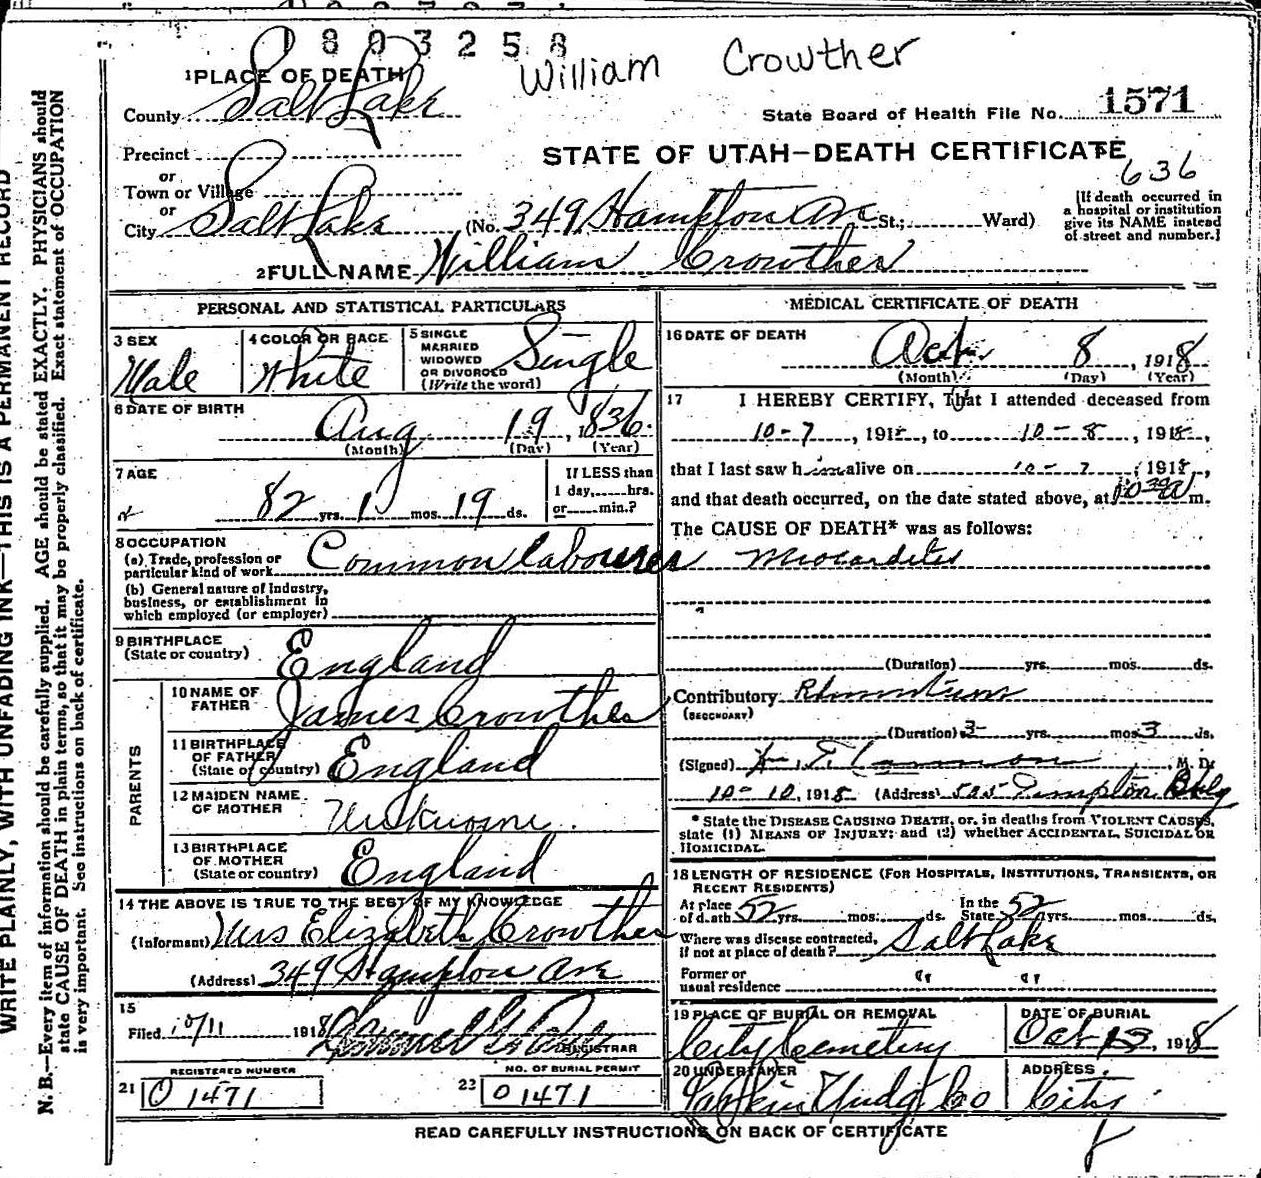 1803258
William Crowther
1 PLACE OF DEATH
County Salt Lake
State Board of Health File No. 1571
Precinct
or
STATE OF UTAH—DEATH CERTIFICATE
636
Town or Village
or
City Salt Lake (No. 349 Hampton Ave St.; Ward)
[If death occurred in
a hospital or institution
give its NAME instead
of street and number.]
2 FULL NAME William Crowther
PERSONAL AND STATISTICAL PARTICULARS
3 SEX
Male
4 COLOR OR RACE
White
5 SINGLE
MARRIED
WIDOWED
OR DIVORCED
(Write the word)
Single
6 DATE OF BIRTH
Aug 19, 1836.
(Month) (Day) (Year)
7 AGE
82 yrs. 1 mos. 19 ds.
If LESS than
1 day, hrs.
or min.?
8 OCCUPATION
(a) Trade, profession or
particular kind of work Common labourer
(b) General nature of Industry,
business, or establishment in
which employed (or employer)
9 BIRTHPLACE
(State or country) England
PARENTS
10 NAME OF
FATHER James Crowther
11 BIRTHPLACE
OF FATHER
(State or country) England
12 MAIDEN NAME
OF MOTHER
13 BIRTHPLACE
OF MOTHER
(State or country) England
14 THE ABOVE IS TRUE TO THE BEST OF MY KNOWLEDGE
(Informant) Mrs Elizabeth Crowther
(Address) 349 Hampton Ave
15
Filed 10/11 1918
REGISTRAR
REGISTERED NUMBER
21 01471
NO. OF BURIAL PERMIT
22 01471
MEDICAL CERTIFICATE OF DEATH
16 DATE OF DEATH
Oct 8, 1918
(Month) (Day) (Year)
17 I HEREBY CERTIFY, That I attended deceased from
10-7, 1918, to 10-8, 1918,
that I last saw him alive on 10-7, 1918,
and that death occurred, on the date stated above, at 10 30 A m.
The CAUSE OF DEATH* was as follows:
Miocarditis
(Duration) yrs. mos. ds.
Contributory Rheumatism
(SECONDARY)
(Duration) 3 yrs. mos 3 ds.
(Signed) M. D.
10-10, 1918 (Address) 505 Templton Bldg
* State the DISEASE CAUSING DEATH, or, in deaths from VIOLENT CAUSES,
state (1) MEANS OF INJURY; and (2) whether ACCIDENTAL, SUICIDAL OR
HOMICIDAL.
18 LENGTH OF RESIDENCE (FOR HOSPITALS, INSTITUTIONS, TRANSIENTS, OR
RECENT RESIDENTS)
At place
of death 52 yrs. mos. ds.
In the
State 52 yrs. mos. ds.
Where was disease contracted,
if not at place of death? Salt Lake
Former or
usual residence " "
19 PLACE OF BURIAL OR REMOVAL
City Cemetery
DATE OF BURIAL
Oct 13, 1918
20 UNDERTAKER
ADDRESS
City
READ CAREFULLY INSTRUCTIONS ON BACK OF CERTIFICATE
WRITE PLAINLY, WITH UNFADING INK—THIS IS A PERMANENT RECORD
N. B.—Every item of information should be carefully supplied. AGE should be stated EXACTLY. PHYSICIANS should
state CAUSE OF DEATH in plain terms, so that it may be properly classified. Exact statement of OCCUPATION
is very important. See instructions on back of certificate.